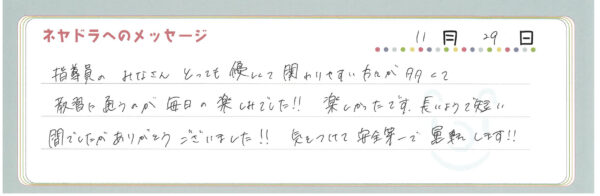 ネヤドラへのメッセージ
11月 29日
指導員の みなさん とっても 優しくて 関わりやすい 方たちが 多くて
教習に 通うのが 毎日の 楽しみでした!! 楽しかったです。長いようで短い
間でしたが ありがとう ございました!! 気をつけて 安全第一で 運転 します!!